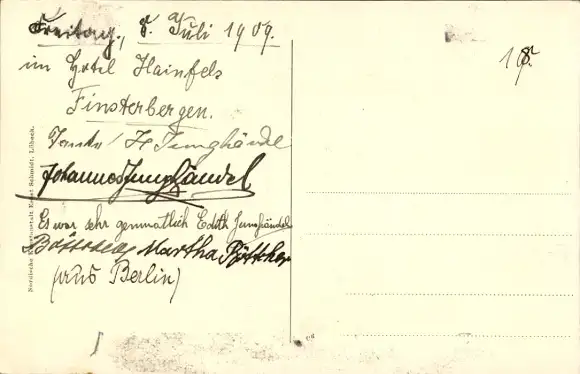 Freitag, 8. Juli 1909.
im Hotel Hainfels
Finsterbergen.
H Junghändel
Johannes Junghändel
Es war sehr gemuatlich Edith Junghändel
Martha Böttcher
(aus Berlin)
18.
Nordische Kunstanstalt Ernst Schmidt, Lübeck.